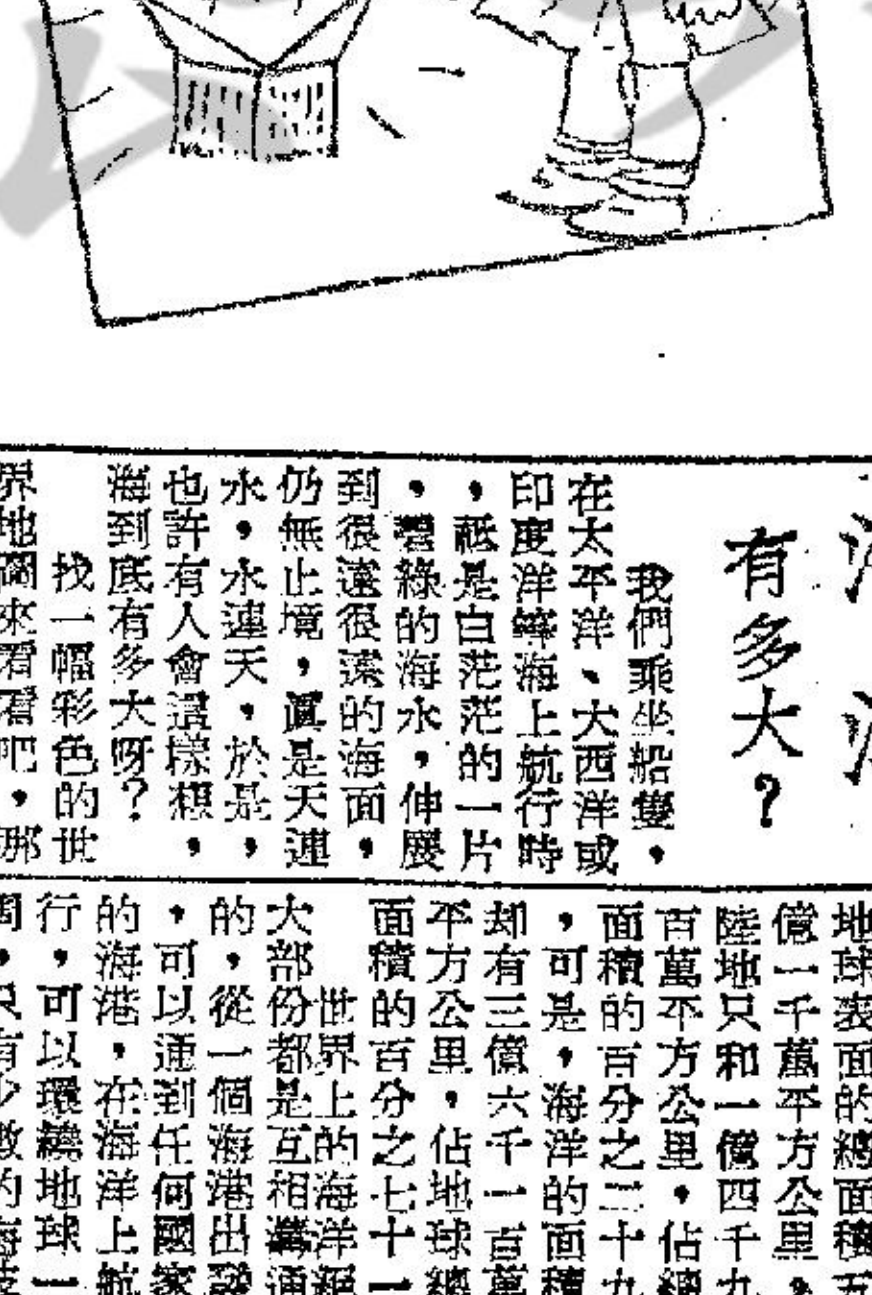 有多大？
我們乘坐船隻，
在太平洋、大西洋或
印度洋等海上航行時
，祇是白茫茫的一片
，碧綠的海水，伸展
到很遠很遠的海面，
仍無止境，眞是天連
水，水連天，於是，
也許有人會這樣想，
海到底有多大呀？
找一幅彩色的世
界地圖來看看吧，那
地球表面的總面積五
億一千萬平方公里，
陸地只和一億四千九
百萬平方公里，佔總
面積的百分之二十九
，可是，海洋的面積
却有三億六千一百萬
平方公里，佔地球總
面積的百分之七十一
世界上的海洋絕
大部份都是互相溝通
的，從一個海港出發
，可以通到任何國家
的海港，在海洋上航
行，可以環繞地球一
周，只有少數的海